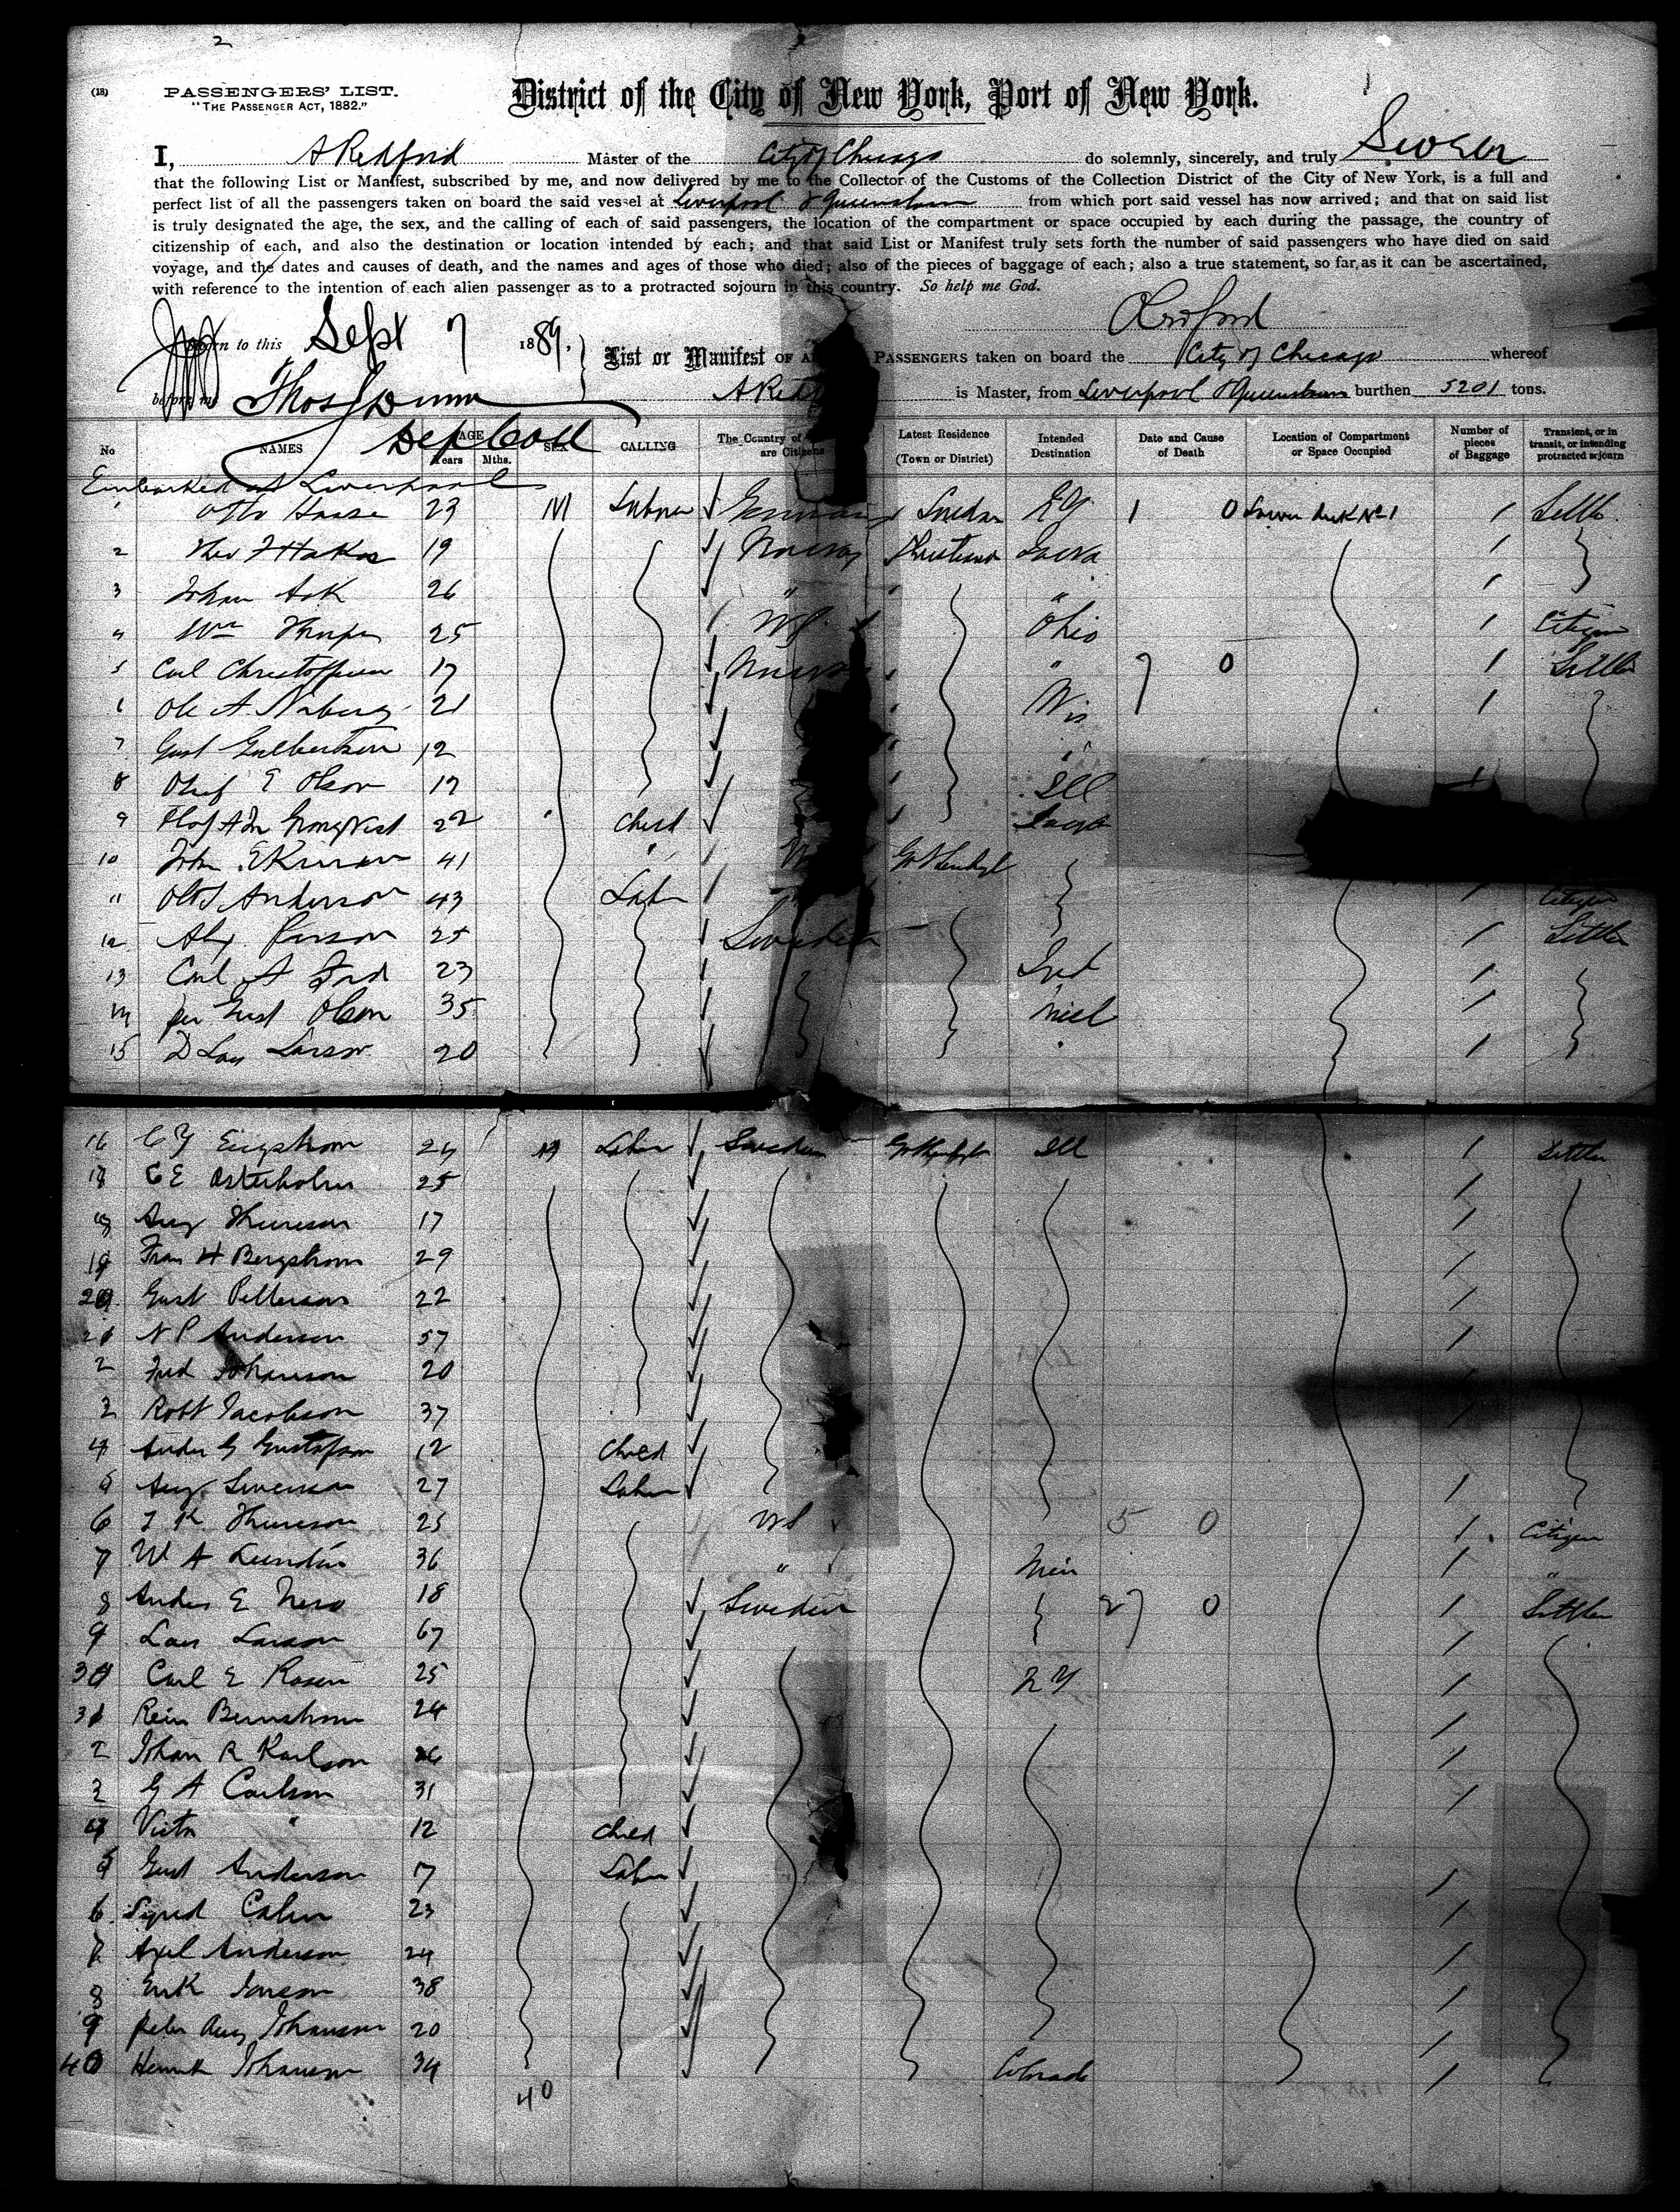 2
(18)
PASSENGERS' LIST.
"THE PASSENGER ACT, 1882."
District of the City of New York, Port of New York.
I, A Redford Master of the City of Chicago do solemnly, sincerely, and truly Swear
that the following List or Manifest, subscribed by me, and now delivered by me to the Collector of the Customs of the Collection District of the City of New York, is a full and
perfect list of all the passengers taken on board the said vessel at Liverpool & Queenstown from which port said vessel has now arrived; and that on said list
is truly designated the age, the sex, and the calling of each of said passengers, the location of the compartment or space occupied by each during the passage, the country of
citizenship of each, and also the destination or location intended by each; and that said List or Manifest truly sets forth the number of said passengers who have died on said
voyage, and the dates and causes of death, and the names and ages of those who died; also of the pieces of baggage of each; also a true statement, so far as it can be ascertained,
with reference to the intention of each alien passenger as to a protracted sojourn in this country. So help me God.
Redford
Sworn to this Sept 7 1889,
List or Manifest OF ALL PASSENGERS taken on board the City of Chicago whereof
before me Thos J Dunn
A Redf is Master, from Liverpool & Queenstown burthen 5201 tons.
Dep Coll
No NAMES AGE Years Mths. SEX CALLING The Country of are Citizens Latest Residence (Town or District) Intended Destination Date and Cause of Death Location of Compartment or Space Occupied Number of pieces of Baggage Transient, or in transit, or intending protracted sojourn
Embarked at Liverpool
1 Otto Haase 23 M Labourer Germany NY 1 0 Lower deck No 1 1 Settler
2 Theo F 19 Norway Christiania Iowa 1
3 Johan Ask 26 " " 1
4 Wm Thorpe 25 US Ohio 1 Citizen
5 Carl Christoffersen 17 Norway " 7 0 1 Settler
6 Ole A Noberg 21 Wis 1
7 Gust Gulbertsen 12 "
8 Oluf E Olson 17 Ill 1
9 22 " Child
10 John Ekman 41 " Gothenbg
11 Anderson 43 Labr Citizen
12 Alf 25 Sweden 1 Settler
13 Carl A 23 Ind 1
14 per Gust Olson 35 Mich 1
15 Larson 20 " 1
16 C Y Engstrom 24 M Labr Sweden Gothenbg Ill 1 Settler
18 C E Osterholm 25 1
Aug Thureson 17 1
19 Fran H Bergstrom 29 1
20 Gust Petterson 22 1
21 N P Anderson 57 1
2 Fred Johanson 20
3 Robt Jacobson 37
4 Ander G Gustafson 12 Child
5 Aug Swenson 27 Labr 1
6 J K Thureson 25 US 5 0 1 Citizen
7 W A Lundin 36 " Min 1 "
8 Anders E Nero 18 Sweden 27 0 1 Settler
9 Lars Larson 67 1
30 Carl E Rosen 25 NY 1
31 Rein Bernstrom 24 1
2 Johan R Karlson 26 1
3 G A Carlson 31 1
4 Victor " 12 Child
5 Gust Anderson 17 Labr 1
6 Sigrid Calin 23 1
7 Axel Anderson 24 1
8 Erik 38 1
9 Peter Aug Johanson 20 1
40 Henrik Johanson 34 Colorado 1
40